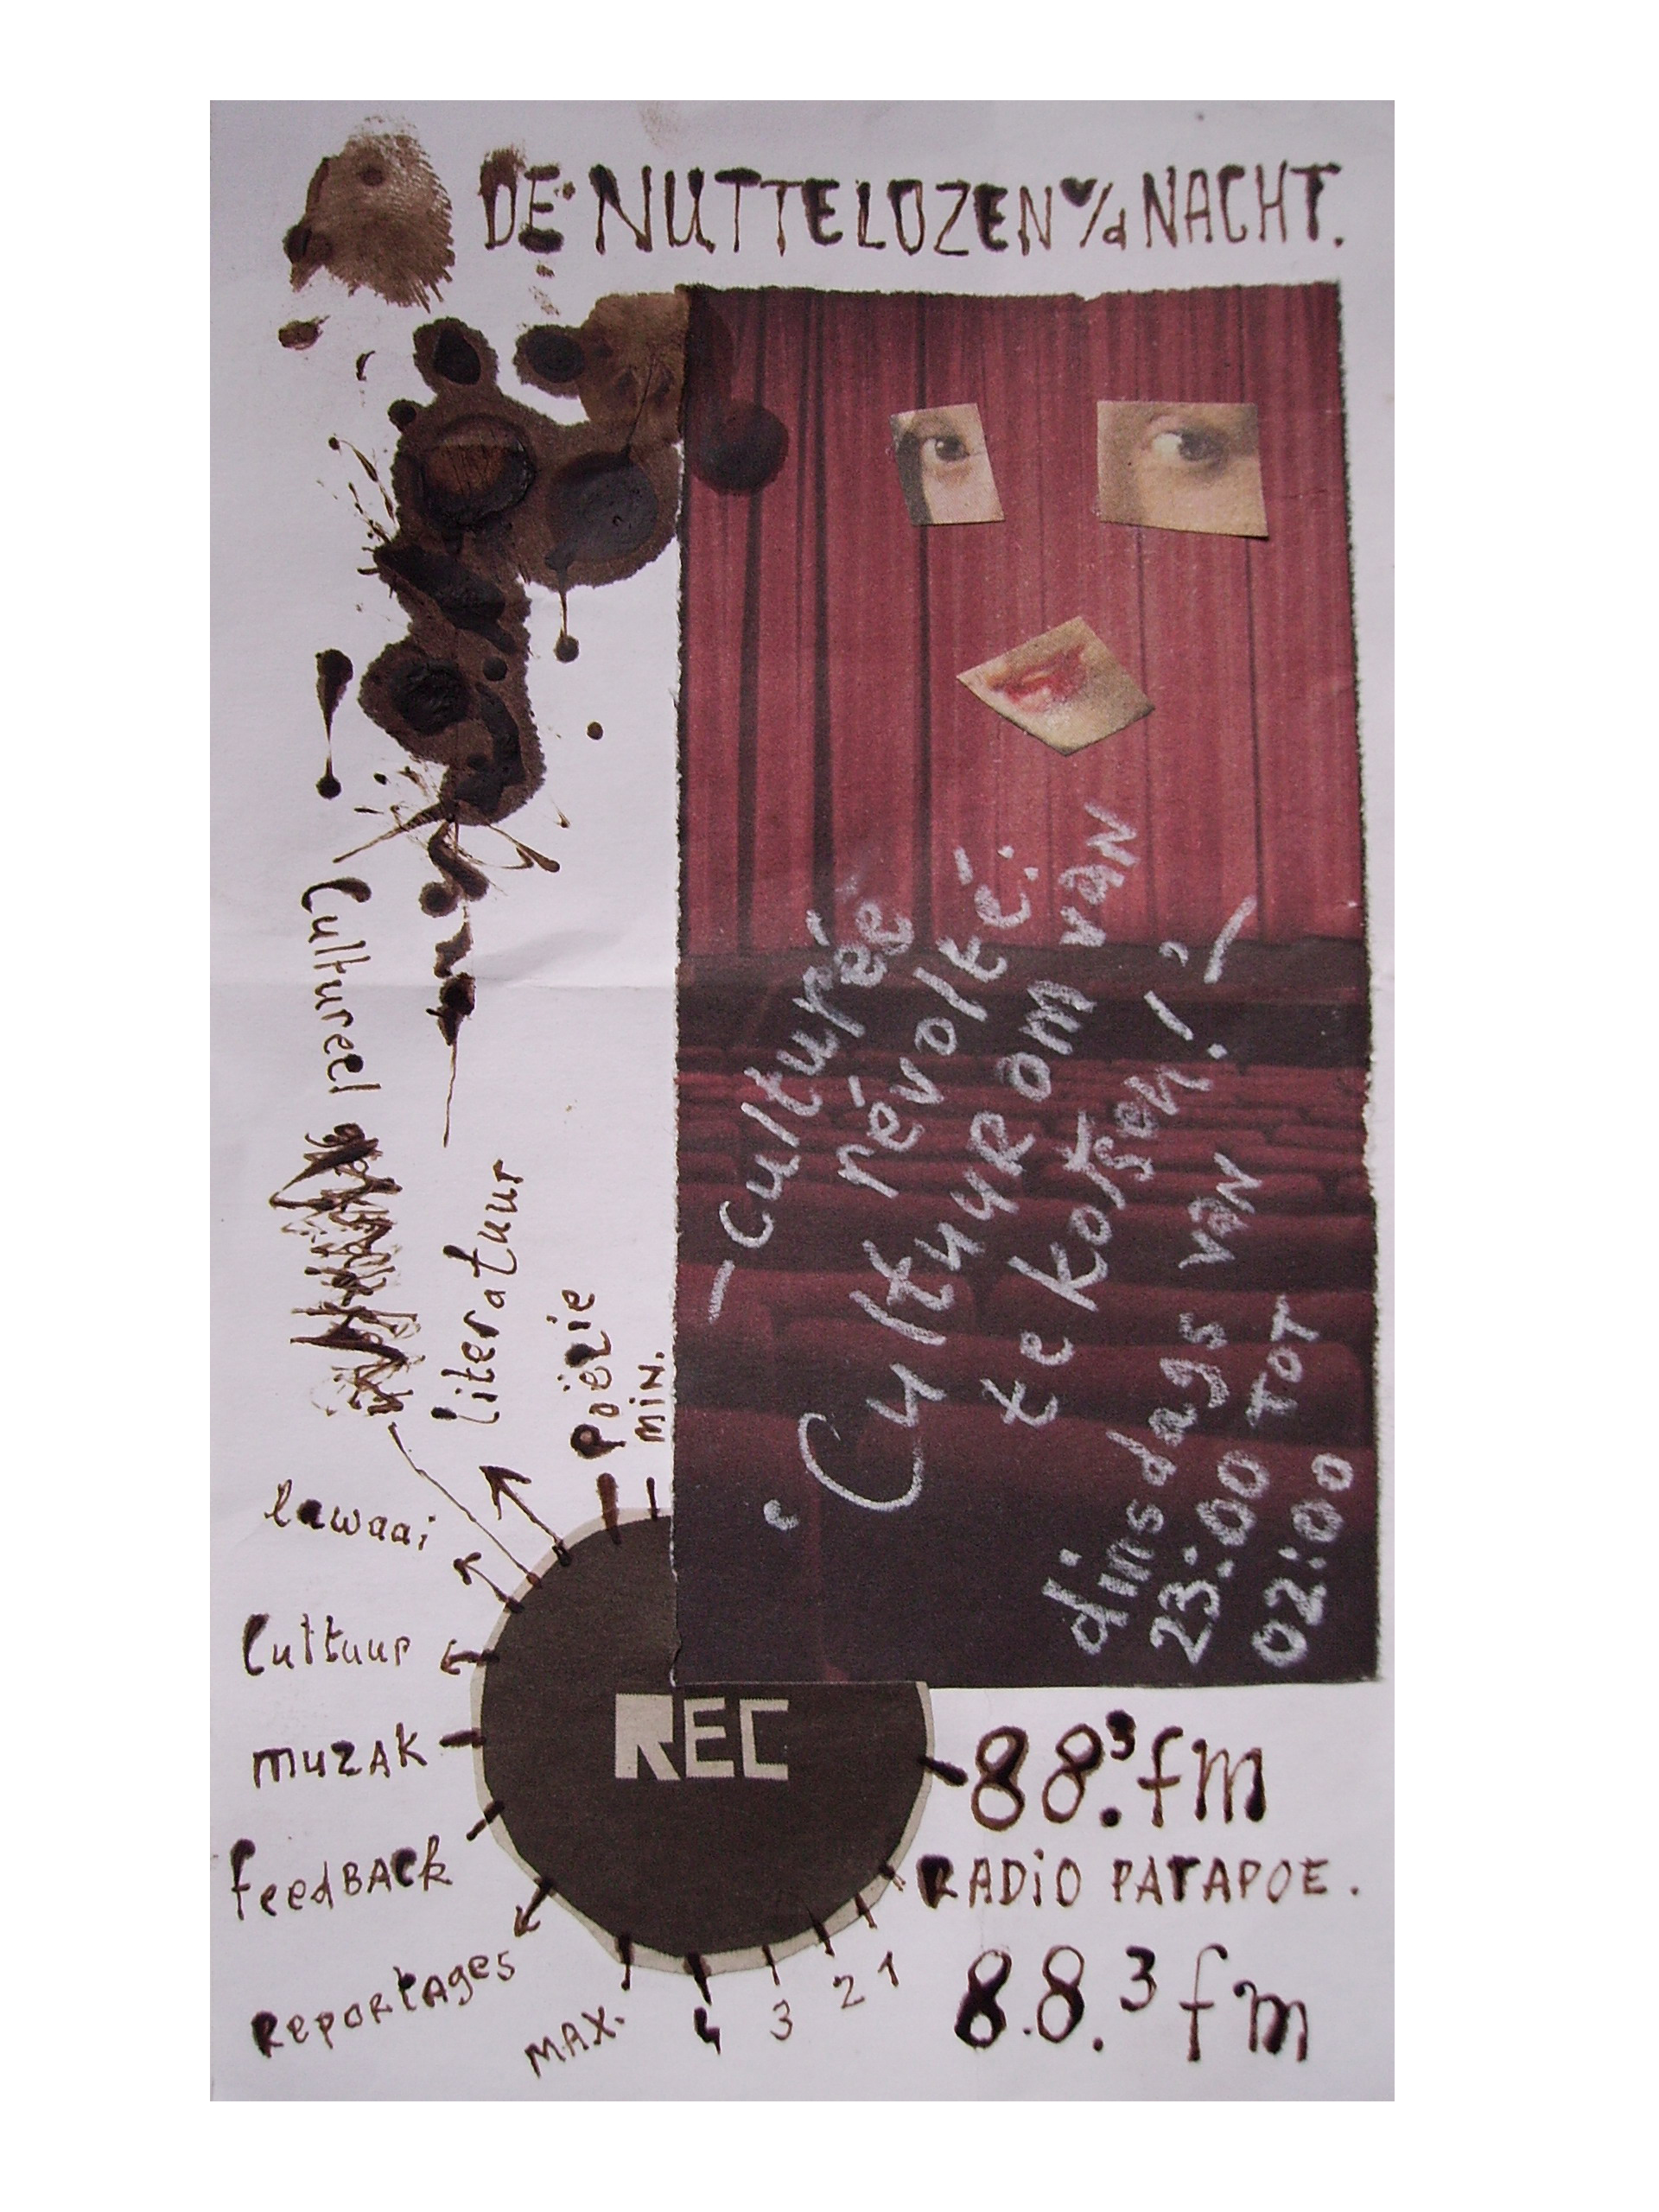 DE NUTTELOZEN v/d NACHT.
- culturéé
révolté:
'Cultuur om van
te kotsen!'
dinsdags van
23:00 TOT
02:00
Cultureel
literatuur
Poëzie
MIN.
lawaai
Cultuur
MUZAK
feedBACK
RePORtAges
MAX.
4
3
2
1
REC
88.³fm
RADiO PATAPOE.
8.8.³fm